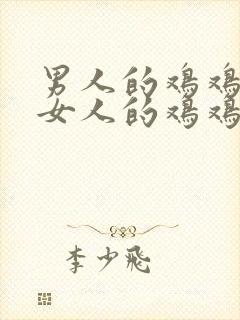 男人的鸡鸡
女人的鸡鸡
李少飛